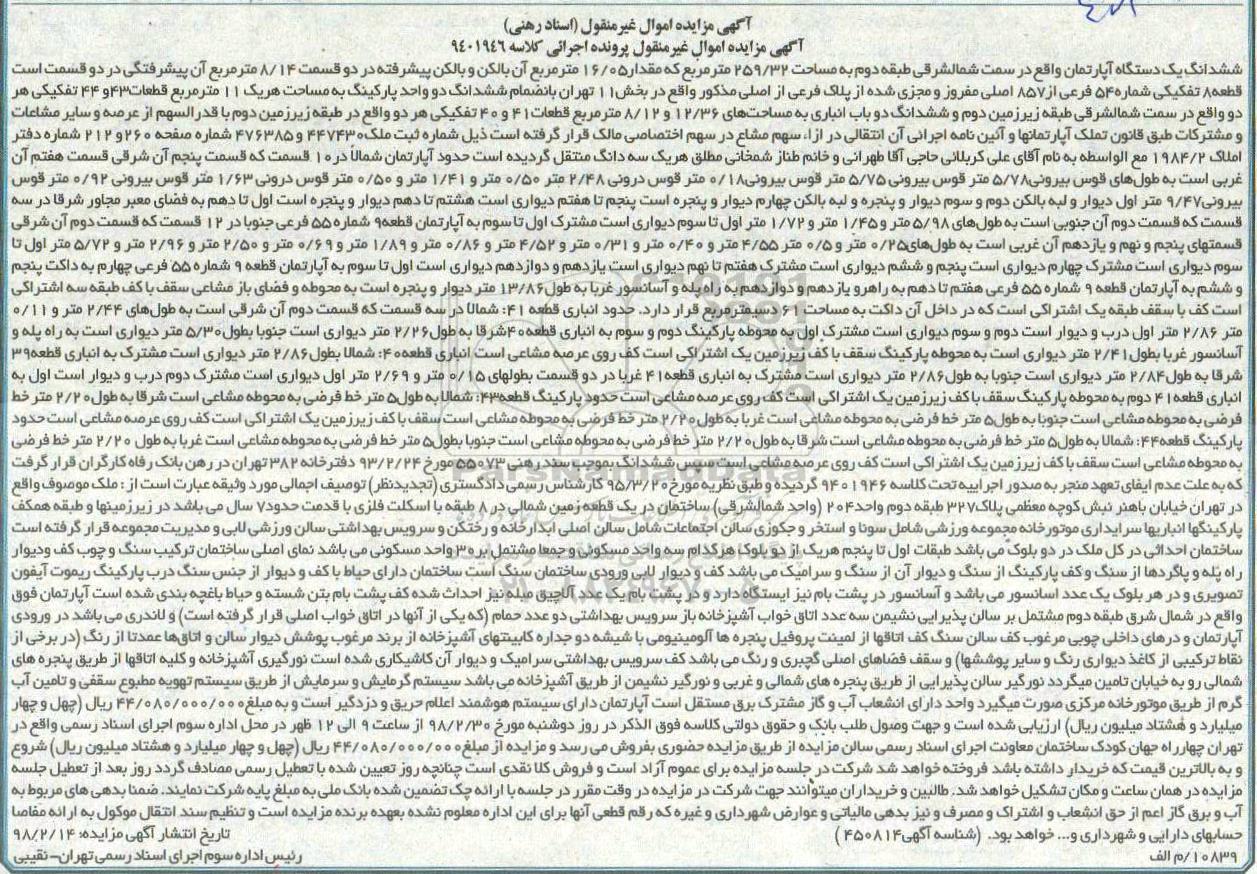 آگهی مزایده اموال غیرمنقول (اسناد رهنی)
آگهی مزایده اموال غیرمنقول پرونده اجرائی کلاسه ۹۴۰۱۹۴۶
ششدانگ یک دستگاه آپارتمان واقع در سمت شمالشرقی طبقه دوم به مساحت ۲۵۹/۳۲ مترمربع که مقدار ۱۶/۰۵ مترمربع آن بالکن و بالکن پیشرفته در دو قسمت ۸/۱۴ مترمربع آن پیشرفتگی در دو قسمت است
قطعه۸ تفکیکی شماره۵۴ فرعی از۸۵۷ اصلی مفروز و مجزی شده از پلاک فرعی از اصلی مذکور واقع در بخش۱۱ تهران بانضمام ششدانگ دو واحد پارکینگ به مساحت هریک ۱۱ مترمربع قطعات۴۳و ۴۴ تفکیکی هر
دو واقع در سمت شمالشرقی طبقه زیرزمین دوم و ششدانگ دو باب انباری به مساحت‌های ۱۲/۳۶ و ۸/۱۲ مترمربع قطعات۴۱ و ۴۰ تفکیکی هر دو واقع در طبقه زیرزمین دوم با قدرالسهم از عرصه و سایر مشاعات
و مشترکات طبق قانون تملک آپارتمانها و آئین نامه اجرائی آن انتقالی در ازاء سهم مشاع در سهم اختصاصی مالک قرار گرفته است ذیل شماره ثبت ملک۴۴۷۴۳۰ و ۴۷۶۳۸۵ شماره صفحه ۲۶۰و ۲۱۲ شماره دفتر
املاک ۱۹۸۴/۲ مع الواسطه به نام آقای علی کربلائی حاجی آقا طهرانی و خانم طناز شمخانی مطلق هریک سه دانگ منتقل گردیده است حدود آپارتمان شمالاً در۱۰ قسمت که قسمت پنجم آن شرقی قسمت هفتم آن
غربی است به طول‌های قوس بیرونی۵/۷۸ متر قوس بیرونی ۵/۷۵ متر قوس بیرونی۰/۱۸ متر قوس درونی ۲/۴۸ متر ۰/۵۰ متر و ۱/۴۱ متر و ۰/۵۰ متر قوس درونی ۱/۶۳ متر قوس بیرونی ۰/۹۲ متر قوس
بیرونی۹/۴۷ متر اول دیوار و لبه بالکن دوم و سوم دیوار و پنجره و لبه بالکن چهارم دیوار و پنجره است پنجم تا هفتم دیواری است هشتم تا دهم دیوار و پنجره است اول تا دهم به فضای معبر مجاور شرقا در سه
قسمت که قسمت دوم آن جنوبی است به طول‌های ۵/۹۸ متر و ۱/۴۵ متر و ۱/۷۲ متر اول تا سوم دیواری است مشترک اول تا سوم به آپارتمان قطعه۹ شماره ۵۵ فرعی جنوبا در ۱۲ قسمت که قسمت دوم آن شرقی
قسمتهای پنجم و نهم و یازدهم آن غربی است به طول‌های۰/۲۵ متر و ۰/۵ متر ۴/۵۵ متر و ۰/۴۰ متر و ۰/۳۱ متر و ۴/۵۲ متر و ۰/۸۶ متر و ۱/۸۹ متر و ۰/۶۹ متر و ۲/۵۰ متر و ۲/۹۶ متر و ۵/۷۲ متر اول تا
سوم دیواری است مشترک چهارم دیواری است پنجم و ششم دیواری است مشترک هفتم تا نهم دیواری است یازدهم و دوازدهم دیواری است اول تا سوم به آپارتمان قطعه ۹ شماره ۵۵ فرعی چهارم به داکت پنجم
و ششم به آپارتمان قطعه ۹ شماره ۵۵ فرعی هفتم تا دهم به راهرو یازدهم و دوازدهم به راه پله و آسانسور غربا به طول۱۳/۸۶ متر دیوار و پنجره است به محوطه و فضای باز مشاعی سقف با کف طبقه سه اشتراکی
است کف با سقف طبقه یک اشتراکی است که در داخل آن داکت به مساحت ۰/۶۱ سیمترمربع قرار دارد. حدود انباری قطعه ۴۱: شمالا در سه قسمت که قسمت دوم آن شرقی است به طول‌های ۲/۴۴ متر و ۰/۱۱
متر ۲/۸۶ متر اول درب و دیوار است دوم و سوم دیواری است مشترک اول به محوطه پارکینگ دوم و سوم به انباری قطعه۴۰ شرقا به طول۲/۲۶ متر دیواری است جنوبا بطول۵/۳۰ متر دیواری است به راه پله و
آسانسور غربا بطول۲/۴۱ متر دیواری است به محوطه پارکینگ سقف با کف زیرزمین یک اشتراکی است کف روی عرصه مشاعی است انباری قطعه۴۰: شمالا بطول۲/۸۶ متر دیواری است مشترک به انباری قطعه۳۹
شرقا به طول۲/۸۴ متر دیواری است جنوبا به طول۲/۸۶ متر دیواری است مشترک به انباری قطعه۴۱ غربا در دو قسمت بطولهای ۰/۱۵ متر و ۲/۶۹ متر اول دیواری است مشترک دوم درب و دیوار است اول به
انباری قطعه۴۱ دوم به محوطه پارکینگ سقف با کف زیرزمین یک اشتراکی است کف روی عرصه مشاعی است حدود پارکینگ قطعه۴۳: شمالا به طول۵ متر خط فرضی به محوطه مشاعی است شرقا به طول۲/۲۰ متر خط
فرضی به محوطه مشاعی است جنوبا به طول۵ متر خط فرضی به محوطه مشاعی است غربا به طول۲/۲۰ متر خط فرضی به محوطه مشاعی است سقف با کف زیرزمین یک اشتراکی است کف روی عرصه مشاعی است حدود
پارکینگ قطعه۴۴: شمالا به طول۵ متر خط فرضی به محوطه مشاعی است شرقا به طول۲/۲۰ متر خط فرضی به محوطه مشاعی است جنوبا بطول۵ متر خط فرضی به محوطه مشاعی است غربا به طول ۲/۲۰ متر خط فرضی
به محوطه مشاعی است سقف با کف زیرزمین یک اشتراکی است کف روی عرصه مشاعی است سپس ششدانگ بموجب سند رهنی ۵۵۰۷۳ مورخ ۹۳/۲/۲۴ دفترخانه ۳۸۲ تهران در رهن بانک رفاه کارگران قرار گرفت
که به علت عدم ایفای تعهد منجر به صدور اجراییه تحت کلاسه ۹۴۰۱۹۴۶ گردیده و طبق نظریه مورخ ۹۵/۳/۲۰ کارشناس رسمی دادگستری (تجدیدنظر) توصیف اجمالی مورد وثیقه عبارت است از : ملک موصوف واقع
در تهران خیابان باهنر نبش کوچه معظمی پلاک۳۲۷ طبقه دوم واحد۲۰۴ (واحد شمالشرقی) ساختمان در یک قطعه زمین شمالی در ۸ طبقه با اسکلت فلزی با قدمت حدود۷ سال می باشد در زیرزمینها و طبقه همکف
پارکینگها انباریها سرایداری موتورخانه مجموعه ورزشی شامل سونا و استخر و جکوزی سالن اجتماعات شامل سالن اصلی ابدارخانه و رختکن و سرویس بهداشتی سالن ورزشی لابی و مدیریت مجموعه قرار گرفته است
ساختمان احداثی در کل ملک در دو بلوک می باشد طبقات اول تا پنجم هریک از دو بلوک هرکدام سه واحد مسکونی و جمعا مشتمل بر ۳۰ واحد مسکونی می باشد نمای اصلی ساختمان ترکیب سنگ و چوب کف ودیوار
راه پله و پاگردها از سنگ و کف پارکینگ از سنگ و دیوار آن از سنگ و سرامیک می باشد کف و دیوار لابی ورودی ساختمان سنگ است ساختمان دارای حیاط با کف و دیوار از جنس سنگ درب پارکینگ ریموت آیفون
تصویری و در هر بلوک یک عدد آسانسور می باشد و آسانسور در پشت بام نیز ایستگاه دارد و در پشت بام یک عدد آلاچیق مبله نیز احداث شده کف پشت بام بتن شسته و حیاط باغچه بندی شده است آپارتمان فوق
واقع در شمال شرق طبقه دوم مشتمل بر سالن پذیرایی نشیمن سه عدد اتاق خواب آشپزخانه باز سرویس بهداشتی دو عدد حمام (که یکی از آنها در اتاق خواب اصلی قرار گرفته است) و لاندری می باشد در ورودی
آپارتمان و درهای داخلی چوبی مرغوب کف سالن سنگ کف اتاقها از لمینت پروفیل پنجره ها آلومینیومی با شیشه دو جداره کابینتهای آشپزخانه از برند مرغوب پوشش دیوار سالن و اتاق‌ها عمدتا از رنگ (در برخی از
نقاط ترکیبی از کاغذ دیواری رنگ و سایر پوششها) و سقف فضاهای اصلی گچبری و رنگ می باشد کف سرویس بهداشتی سرامیک و دیوار آن کاشیکاری شده است نورگیری آشپزخانه و کلیه اتاقها از طریق پنجره های
شمالی رو به خیابان تامین میگردد نورگیر سالن پذیرایی از طریق پنجره های شمالی و غربی و نورگیر نشیمن از طریق آشپزخانه می باشد سیستم گرمایش و سرمایش از طریق سیستم تهویه مطبوع سقفی و تامین آب
گرم از طریق موتورخانه مرکزی صورت میگیرد واحد دارای انشعاب آب و گاز مشترک برق مستقل است آپارتمان دارای سیستم هوشمند اعلام حریق و دزدگیر است و به مبلغ۴۴/۰۸۰/۰۰۰/۰۰۰ ریال (چهل و چهار
میلیارد و هشتاد میلیون ریال) ارزیابی شده است و جهت وصول طلب بانک و حقوق دولتی کلاسه فوق الذکر در روز دوشنبه مورخ ۹۸/۲/۳۰ از ساعت ۹ الی ۱۲ ظهر در محل اداره سوم اجرای اسناد رسمی واقع در
تهران چهارراه جهان کودک ساختمان معاونت اجرای اسناد رسمی سالن مزایده از طریق مزایده حضوری بفروش می رسد و مزایده از مبلغ۴۴/۰۸۰/۰۰۰/۰۰۰ ریال (چهل و چهار میلیارد و هشتاد میلیون ریال) شروع
و به بالاترین قیمت که خریدار داشته باشد فروخته خواهد شد شرکت در جلسه مزایده برای عموم آزاد است و فروش کلا نقدی است چنانچه روز تعیین شده با تعطیل رسمی مصادف گردد روز بعد از تعطیل جلسه
مزایده در همان ساعت و مکان تشکیل خواهد شد. طالبین و خریداران میتوانند جهت شرکت در مزایده در وقت مقرر در جلسه با ارائه چک تضمین شده بانک ملی به مبلغ پایه شرکت نمایند. ضمنا بدهی های مربوط به
آب و برق گاز اعم از حق انشعاب و اشتراک و مصرف و نیز بدهی مالیاتی و عوارض شهرداری و غیره که رقم قطعی آنها برای این اداره معلوم نشده بعهده برنده مزایده است و تنظیم سند انتقال موکول به ارائه مفاصا
حسابهای دارایی و شهرداری و... خواهد بود. (شناسه آگهی۴۵۰۸۱۴) تاریخ انتشار آگهی مزایده: ۹۸/۲/۱۴
۱۰۸۳۹/م الف رئیس اداره سوم اجرای اسناد رسمی تهران-نقیبی